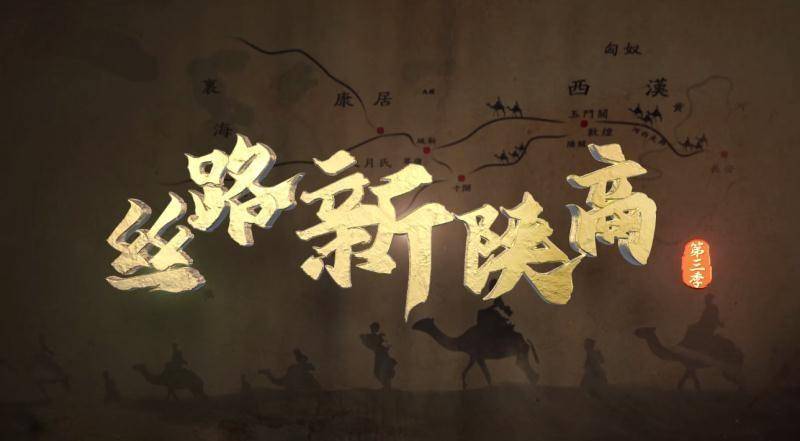 匈奴
西漢
康居
裏海
玉門關
敦煌
黃
長安
月氏
于闐
丝路新陕商
第三季